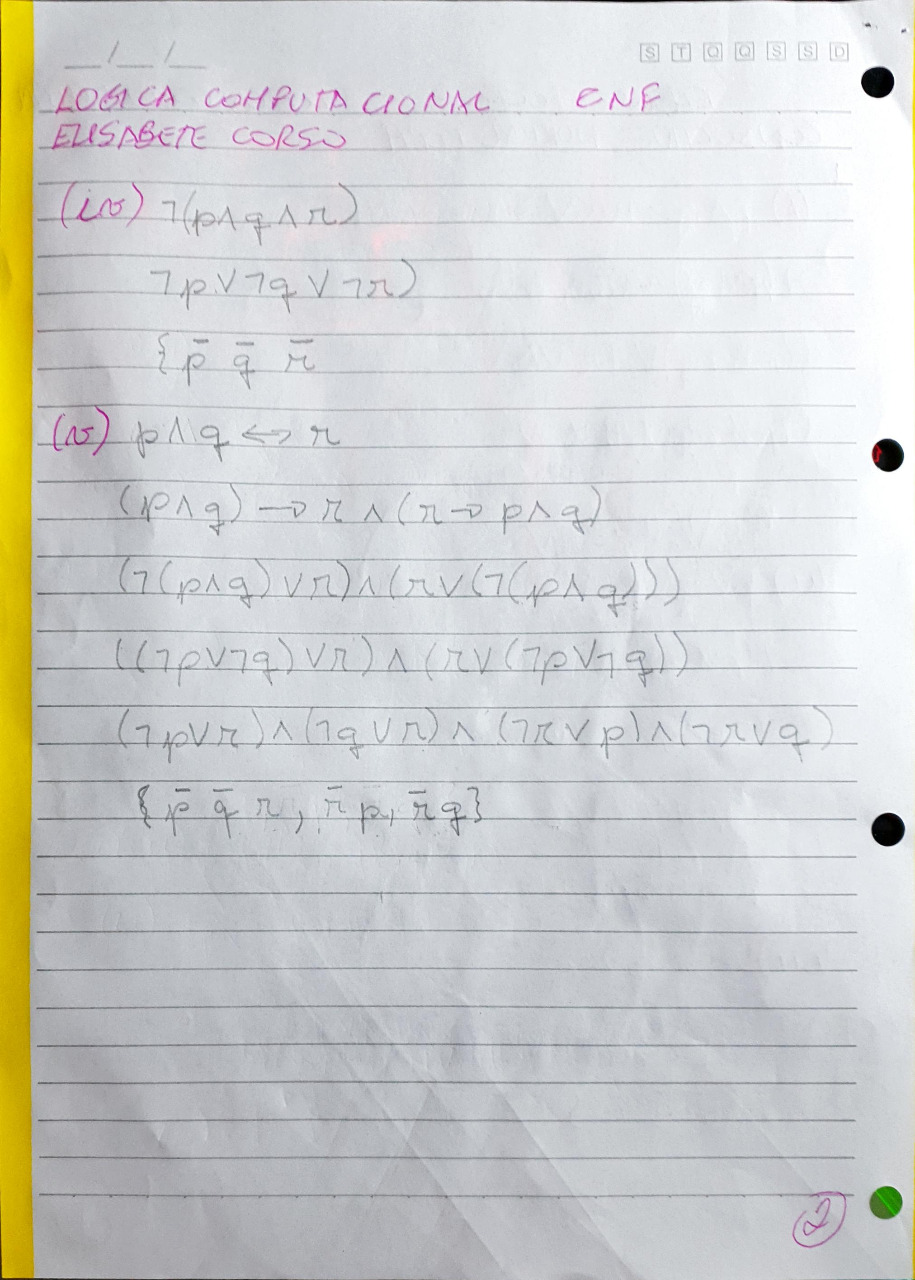 __/__/__ S T Q Q S S D
LOGICA COMPUTACIONAL CNF
ELISABETE CORSO
(iv) ¬(p∧q∧r)
¬p∨¬q∨¬r)
{p̄ q̄ r̄
(v) p∧q ↔ r
(p∧q) → r ∧ (r → p∧q)
(¬(p∧q)∨r)∧(r∨(¬(p∧q)))
((¬p∨¬q)∨r)∧(r∨(¬p∨¬q))
(¬p∨r)∧(¬q∨r)∧(¬r∨p)∧(¬r∨q)
{p̄ q̄ r, r̄ p, r̄ q}
2